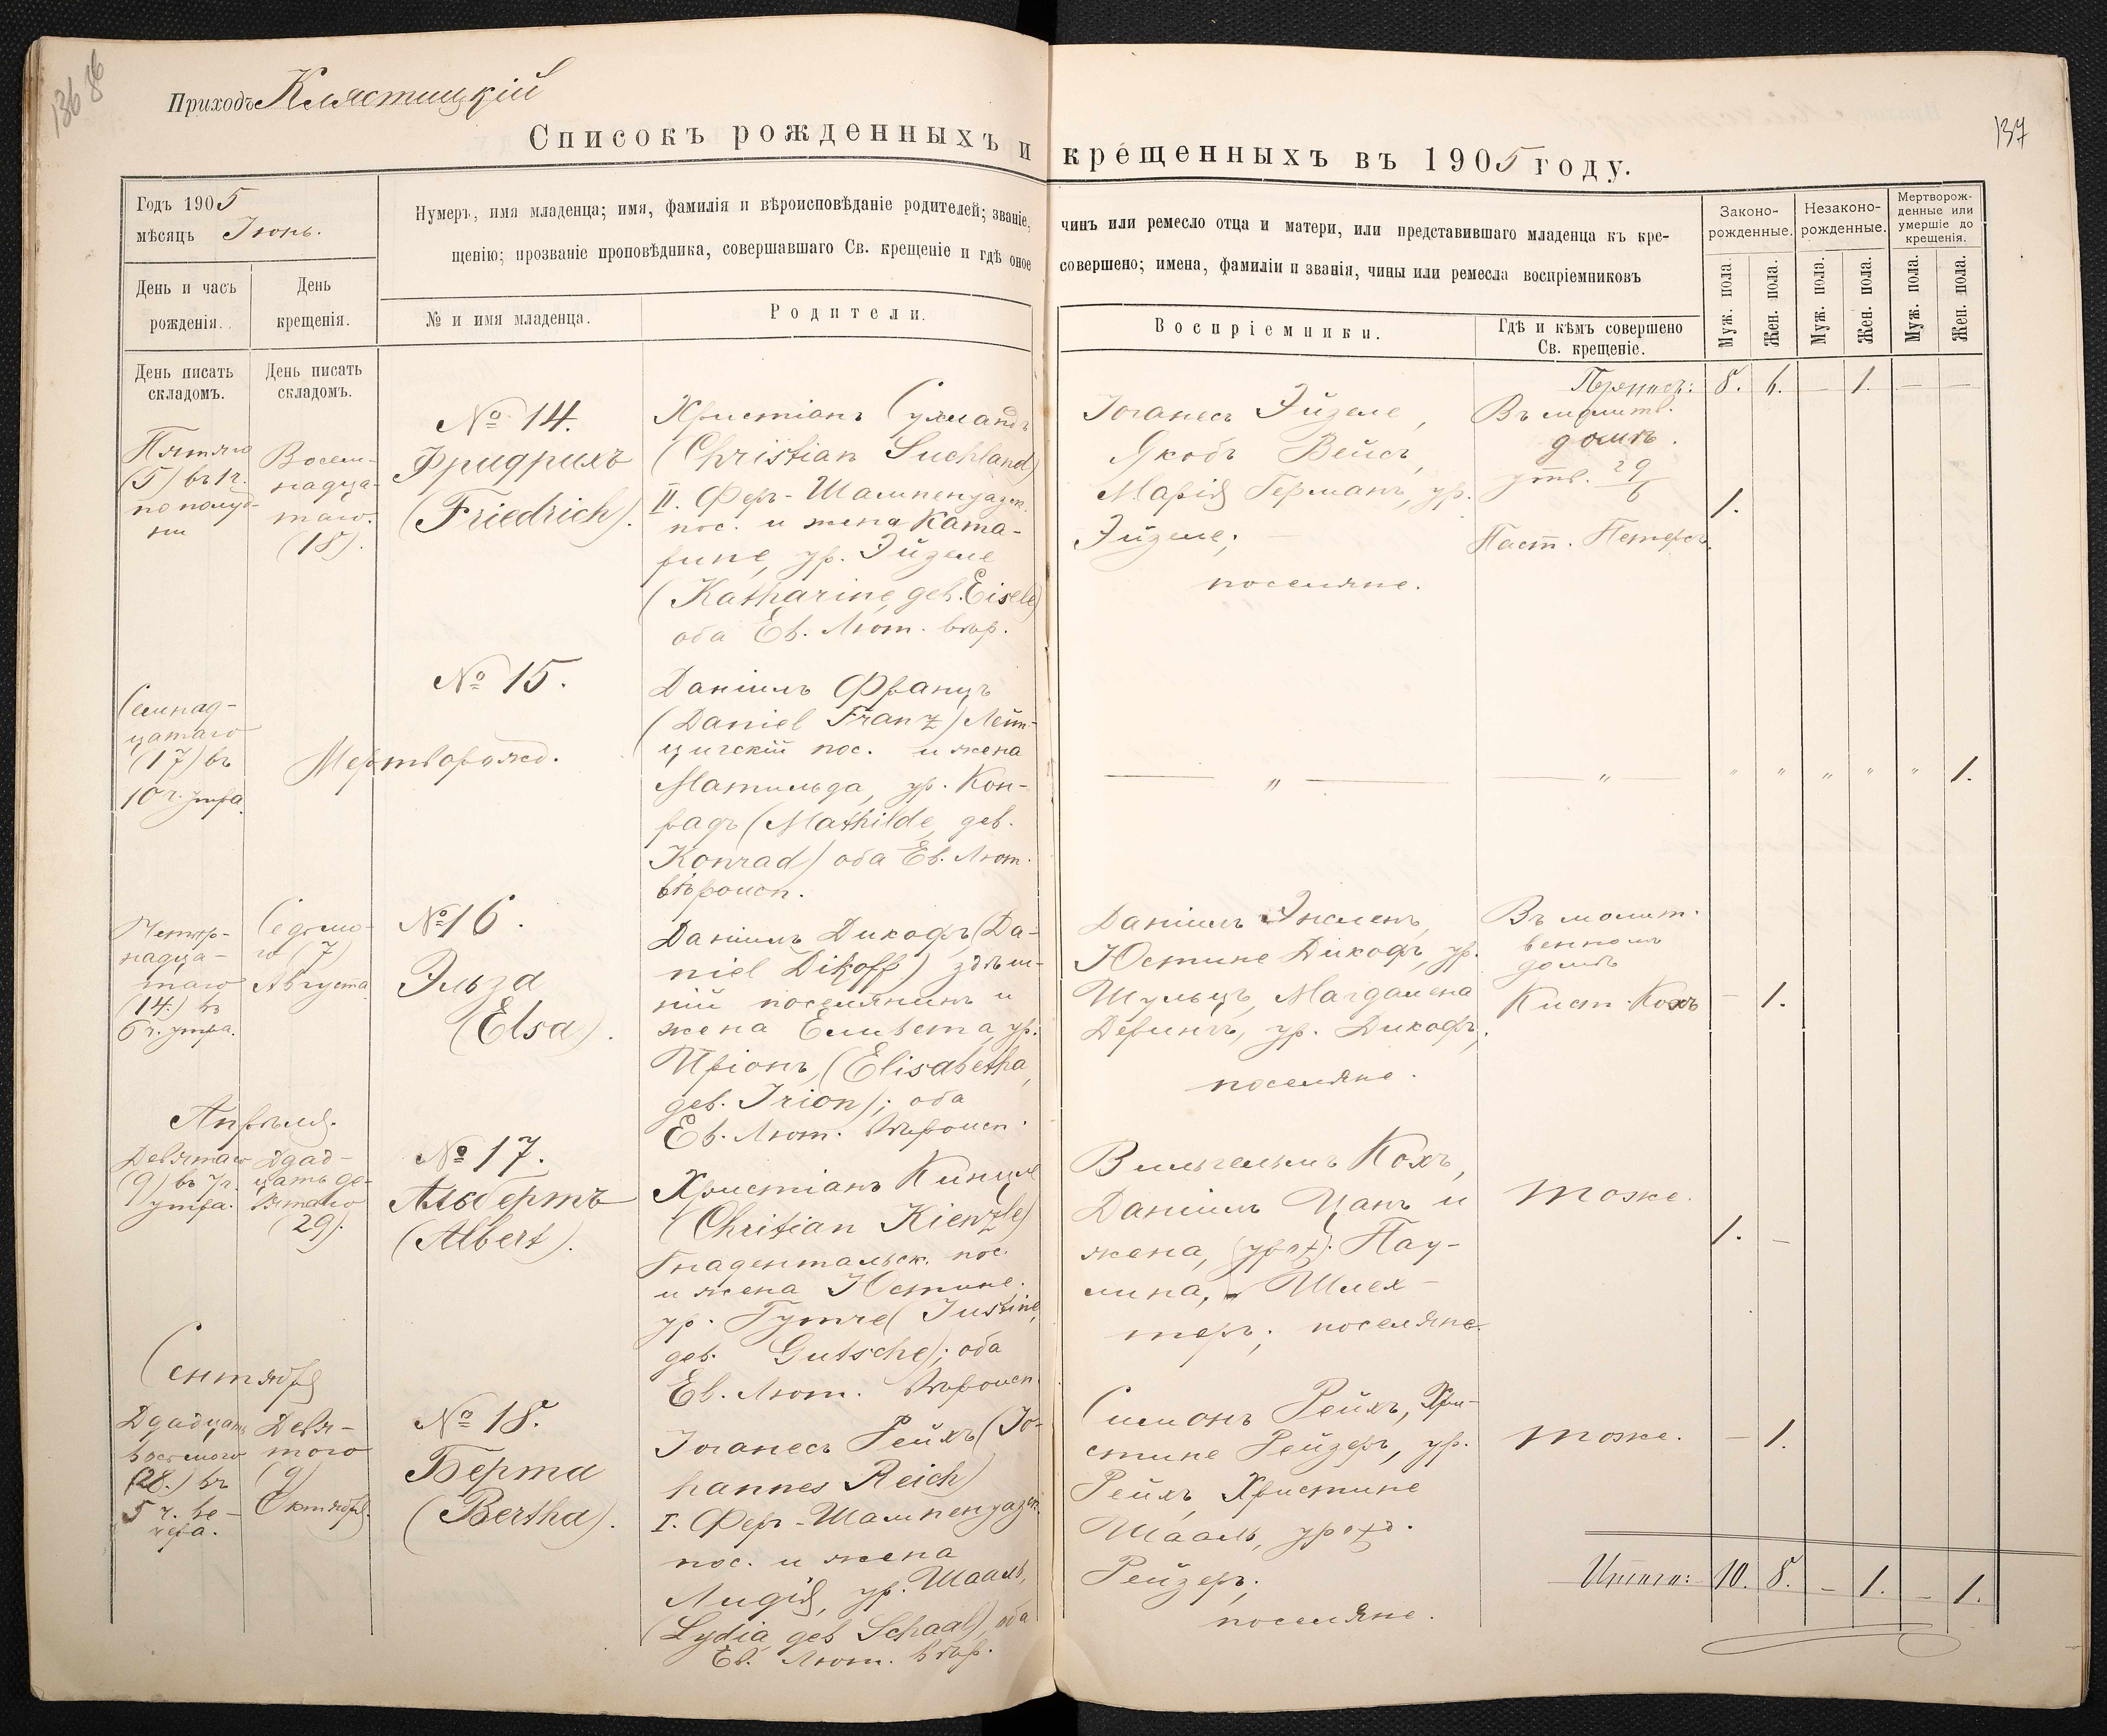 136 86
Приходъ Клястицкій
137
Списокъ рожденныхъ и крещенныхъ въ 1905 году.
Годъ 1905
мѣсяцъ Іюнь.
День и часъ рожденія.
День крещенія.
День писать складомъ.
День писать складомъ.
Нумеръ, имя младенца; имя, фамилія и вѣроисповѣданіе родителей; званіе, чинъ или ремесло отца и матери, или представившаго младенца къ кре-
щенію; прозваніе проповѣдника, совершавшаго Св. крещеніе и гдѣ оное совершено; имена, фамиліи и званія, чины или ремесла воспріемниковъ
№ и имя младенца.
Родители.
Воспріемники.
Гдѣ и кѣмъ совершено
Св. крещеніе.
Законо-
рожденные.
Незаконо-
рожденные.
Мертворож-
денные или
умершіе до
крещенія.
Муж. пола.
Жен. пола.
Муж. пола.
Жен. пола.
Муж. пола.
Жен. пола.
Переносъ: 8. 6. — 1. — —
Пятаго
(5) въ 1 ч.
пополуд-
ни
Восем-
надца-
таго.
(18).
№ 14.
Фридрихъ
(Friedrich).
Христіанъ Сухландъ
(Christian Suchland)
II. Фер-Шампенуазск.
пос. и жена Ката-
рине, ур. Эйзеле
(Katharine, geb. Eisele)
оба Ев. Лют. вѣр.
Іоганесъ Эйзеле,
Якобъ Вейсъ,
Марія Германъ, ур.
Эйзеле;
поселяне.
Въ молитв.
домѣ.
утв. 29/6
Паст. Петерсъ.
1.
Семнад-
цатаго
(17) въ
10 ч. утра.
Мертворожд.
№ 15.
Даніилъ Францъ
(Daniel Franz) Лейп-
цигскій пос. и жена
Матильда, ур. Кон-
радъ (Mathilde, geb.
Konrad) оба Ев. Лют.
вѣроисп.
— " — — " — " " " " " 1.
Четыр-
надца-
таго
(14.) въ
6 ч. утра.
Седьмо-
го (7)
Августа
№ 16.
Эльза
(Elsa).
Даніилъ Дикофъ (Da-
niel Dikoff) здѣш-
ній поселянинъ и
жена Елисвета, ур.
Иріонъ, (Elisabetha,
geb. Irion); оба
Ев. Лют. вѣроисп.
Даніилъ
Юстине Дикофъ, ур.
Шульцъ, Магдалена
Дерингъ, ур. Дикофъ,
поселяне.
Въ молит-
венномъ
домѣ
Кист. Кохъ
— 1.
Апрѣля.
Девятаго
(9) въ 7 ч.
утра.
Двад-
цать де-
вятаго
(29).
№ 17.
Альбертъ
(Albert).
Христіанъ Кинцле
(Chritian Kienzle)
Гнадентальск. пос.
и жена Юстине.
ур. Гутче (Justine,
geb. Gutsche); оба
Ев. Лют. вѣроисп.
Вильгельмъ Кохъ,
Даніилъ Цанъ и
жена, (урожд). Пау-
лина, Шлех-
теръ; поселяне.
тоже.
1. —
Сентября
Двадцать
восьмого
(28.) въ
5 ч. ве-
чера.
Девя-
того
(9)
Октября.
№ 18.
Берта
(Bertha).
Іоганесъ Рейхъ (Jo-
hannes Reich)
I. Фер-Шампенуазск.
пос. и жена
Лидія, ур. Шааль,
(Lydia geb Schaal), оба
Ев. Лют. вѣр.
Симонъ Рейхъ, Хри-
стине Рейзеръ, ур.
Рейхъ, Христине
Шааль, урожд.
Рейзеръ;
поселяне.
тоже.
— 1.
Итого: 10. 8. — 1. — 1.